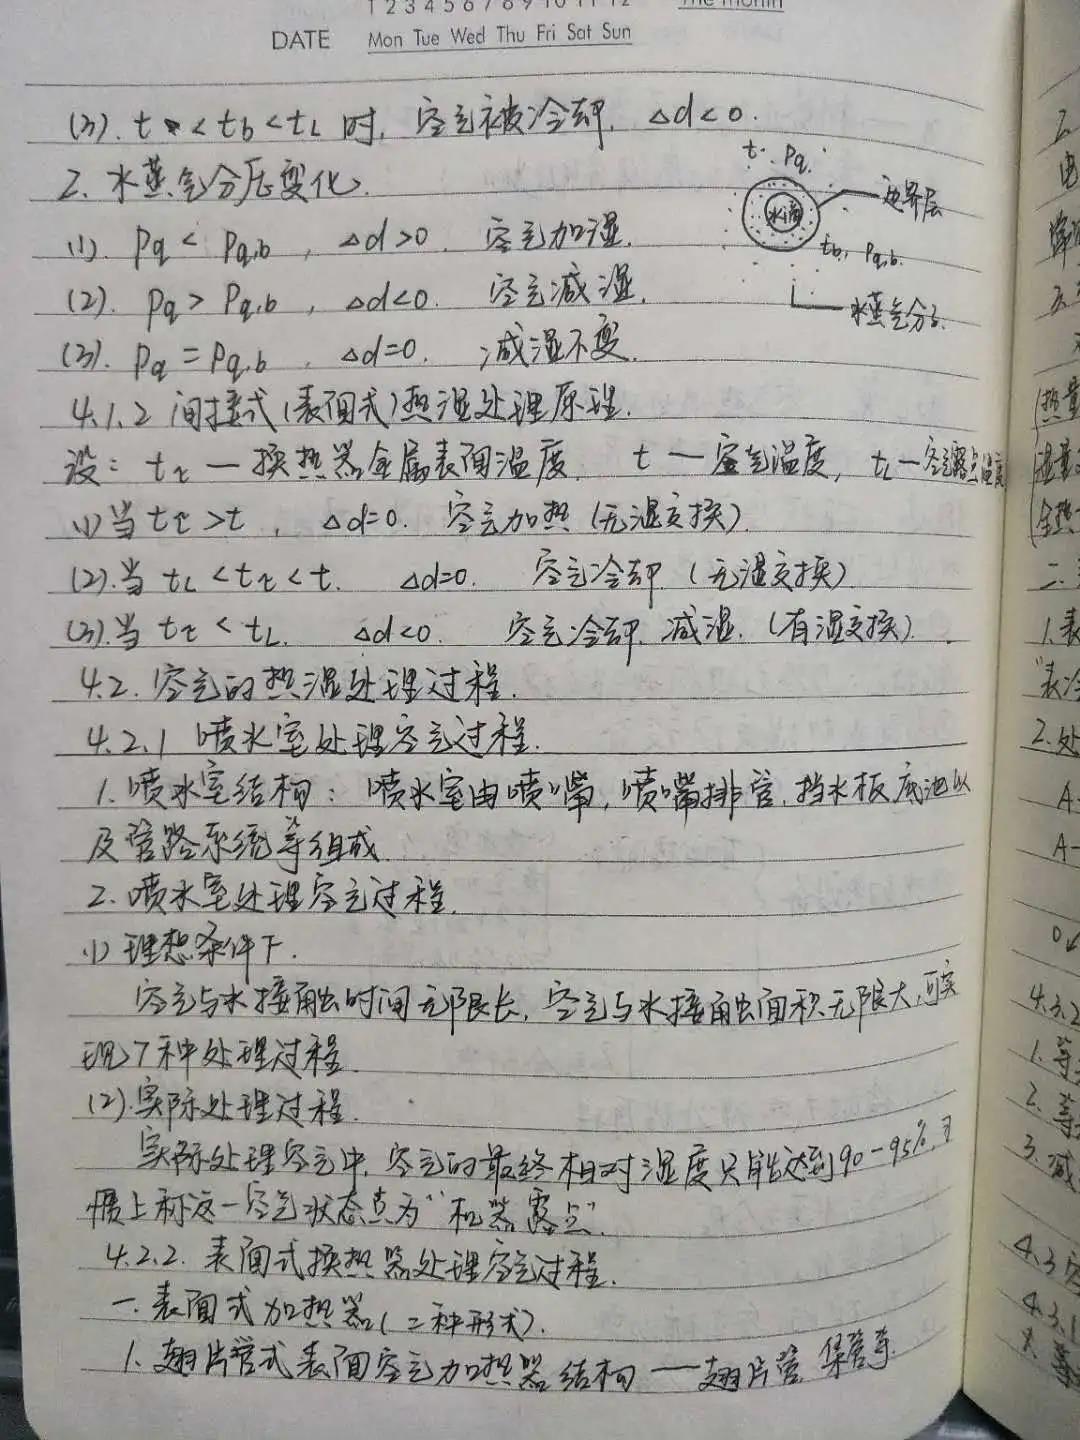 1 2 3 4 5 6 7 8 9 10 11 12 The month
DATE Mon Tue Wed Thu Fri Sat Sun
(3). t < tb < tL 时, 空气被冷却, Δd<0.
2. 水蒸气分压变化.
(1). Pq < Pq,b , Δd>0. 空气加湿.
(2). Pq > Pq,b , Δd<0. 空气减湿.
(3). Pq = Pq,b . Δd=0. 减湿不变.
t. Pq.
边界层
水滴
tb, Pq,b.
水蒸气分子.
4.1.2 间接式(表面式)热湿处理原理.
设: tτ — 换热器金属表面温度. t — 空气温度, tL — 空气露点温度
(1)当 tτ >t , Δd=0. 空气加热(无湿交换).
(2).当 tL < tτ < t. Δd=0. 空气冷却(无湿交换)
(3).当 tτ < tL. Δd<0. 空气冷却, 减湿. (有湿交换).
4.2. 空气的热湿处理过程.
4.2.1 喷水室处理空气过程.
1. 喷水室结构: 喷水室由喷嘴, 喷嘴排管, 挡水板, 底池以
及管路系统等组成.
2. 喷水室处理空气过程.
(1) 理想条件下.
空气与水接触时间无限长, 空气与水接触面积无限大, 可实
现7种处理过程.
(2). 实际处理过程.
实际处理空气中, 空气的最终相对湿度只能达到90-95%, 习
惯上称这一空气状态点为"机器露点".
4.2.2. 表面式换热器处理空气过程.
一. 表面式加热器(二种形式).
1. 翅片管式表面空气加热器结构 — 翅片管,
2.
电
热量
湿量
全热
二.
1. 表
"表冷
2. 处
A
A-
4.3.2
1. 等
2. 等
3. 减
4.3
4.3.1